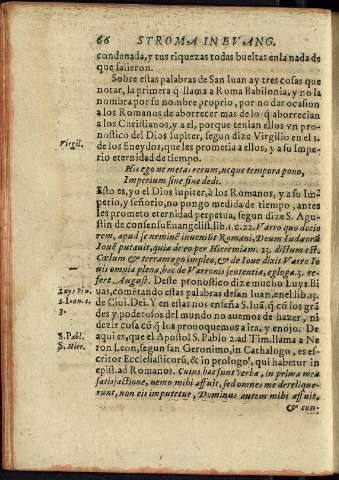 66 STROMA IN EVANG.
condenada, y tus riquezas todas bueltas enla nada de
que salieron.
Sobre estas palabras de San Iuan ay tres cosas que
notar, la primera q̃ llama a Roma Babilonia, y no la
nombra por su nombre proprio, por no dar ocasion
a los Romanos de aborrecer mas de lo q̃ aborrecian
a los Christianos, y a el, porque tenian ellos vn pro-
nostico del Dios Iupiter, segun dize Virgilio en el 1.
Virgil.
de los Eneydos, que les prometia a ellos, y a su Impe-
rio eternidad de tiempo.
His ego ne metas rerum, neque tempora pono,
Imperium sine fine dedi.
Esto es, yo el Dios Iupiter, à los Romanos, y a su Im-
perio, y señorio, no pongo medida de tiempo, antes
les prometo eternidad perpetua, segun dize S. Agus-
tin de consensu Euangelist. lib. 1. c. 22. Varro quo doctio
rem, apud se neminẽ inueniũt Romani, Deum Iudæorũ
Iouẽ putauit, quia de eo per Hieremiam. 23. dictum est.
Cœlum & terram ego impleo, & de Ioue dixit Varro Io
uis omnia plena, hæc de Varronis sententia, egloga. 3. re-
fert August. Deste pronostico dize mucho Luys Bi
Luys Biu.
uas, cometando estas palabras de san Iuan, en el lib. 13.
2. Ioan. c.
de Ciui. Dei. Y en estas nos enseña S. Iuã, q̃ có los grã
3.
des y poderosos del mundo no auemos de hazer, ni
dezir cosa có q̃ los prouoquemos a ira, y enojo. De
S. Pabl.
aqui es, que el Apostol S. Pablo 2. ad Tim. llama a Ne
S. Hier.
ron Leon, segun san Geronimo, in Cathalogo, es es-
critor Ecclesiasticorũ, & in prologo, qui habetur in
epist. ad Romanos. Cuius hæc sunt verba, in prima mea
satisfactione, nemo mihi affuit, sed omnes me derelique-
runt, non eis imputetur, Dominus autem mihi affuit,
& con-